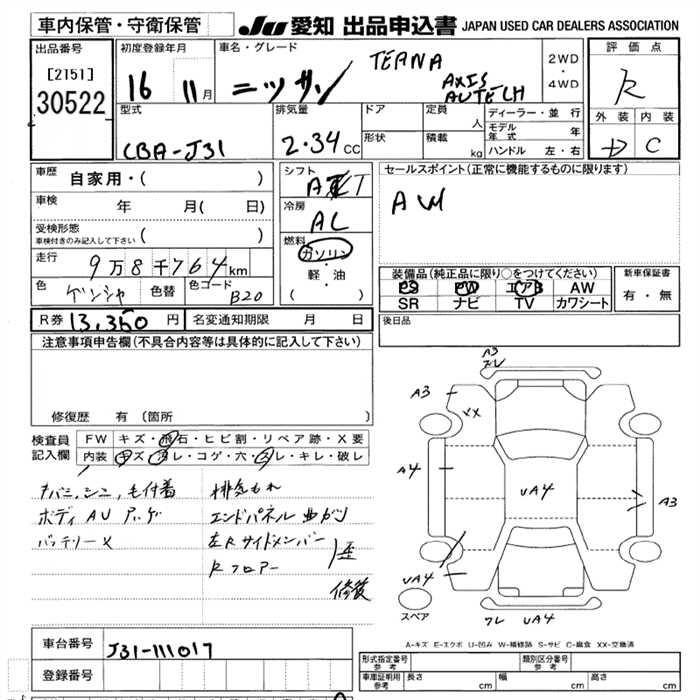 車内保管・守衛保管
JU 愛知 出品申込書 JAPAN USED CAR DEALERS ASSOCIATION
出品番号
[2151]
30522
初度登録年月
16 11月
車名・グレード
ニッサン TEANA
AXIS
AUTECH
2WD
・
4WD
評価点
R
外装 内装
D C
型式
CBA-J31
排気量
2.34CC
ドア
形状
定員 人
積載 kg
ディーラー・並行
モデル年式 年
ハンドル 左・右
車歴 自家用・( )
車検 年 月( 日)
受検形態
車検付きのみ記入して下さい ( )
走行 9万8千764km
色 ゲンシャ 色替 色コード B20
シフト
AT
冷房
AC
燃料
ガソリン
・
軽・油
( )
セールスポイント(正常に機能するものに限ります)
AW
装備品(純品に限り○をつけてください)
PS PW エアB AW
SR ナビ TV カワシート
新車保証書
有・無
R券 13,360円 名変通知期限 月 日
後日品
注意事項申告欄(不具合内容等は具体的に記入して下さい)
修復歴 有 〔箇所 〕
検査員
記入欄
FW キズ・飛石・ヒビ割・リペア跡・X要
内装 キズ・汚レ・コゲ・穴・スレ・キレ・破レ
タバコ、シン、毛付着
ボディ AU
バッテリーX
排気もれ
エンドパネル曲がり
左Rサイドメンバー
Rフロアー
歪
修装
A3
ズレ
A3
XX
A4
UA4
A3
UA4
ワレ UA4
スペア
A-キズ E-エクボ U-凹み W-補修跡 S-サビ C-腐食 XX-交換済
車台番号 J31-111017
登録番号
形式指定番号
参考
類別区分番号
参考
車庫証明用
参考
長さ cm 幅 cm 高さ cm